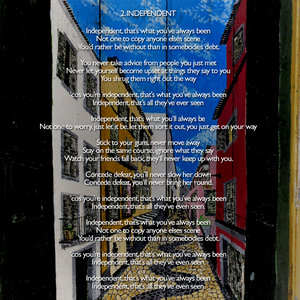 2. INDEPENDENT
Independent, that's what you've always been
Not one to copy anyone elses scene
You'd rather be without than in somebodies debt.
You never take advice from people you just met
Never let yourself become upset at things they say to you
You shrug them right out the way
'cos you're independent, that's what you've always been
Independent, that's all they've ever seen
Independent, that's what you'll always be
Not one to worry, just let it be, let them sort it out, you just get on your way
Stick to your guns, never move away
Stay on the same course, ignore what they say
Watch your friends fall back, they'll never keep up with you.
Concede defeat, you'll never slow her down
Concede defeat, you'll never bring her round.
'cos you're independent, that's what you've always been
Independent, that's all they've ever seen.
Independent, that's what you've always been
Not one to copy anyone elses scene
You'd rather be without than in somebodies debt.
'cos you're independent, that's what you've always been
Independent, that's all they've ever seen
Independent, that's what you've always been
Independent, that's all they've ever seen